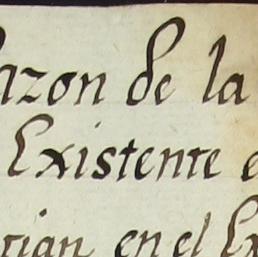 azon de la
Existente e
cian en el Ex